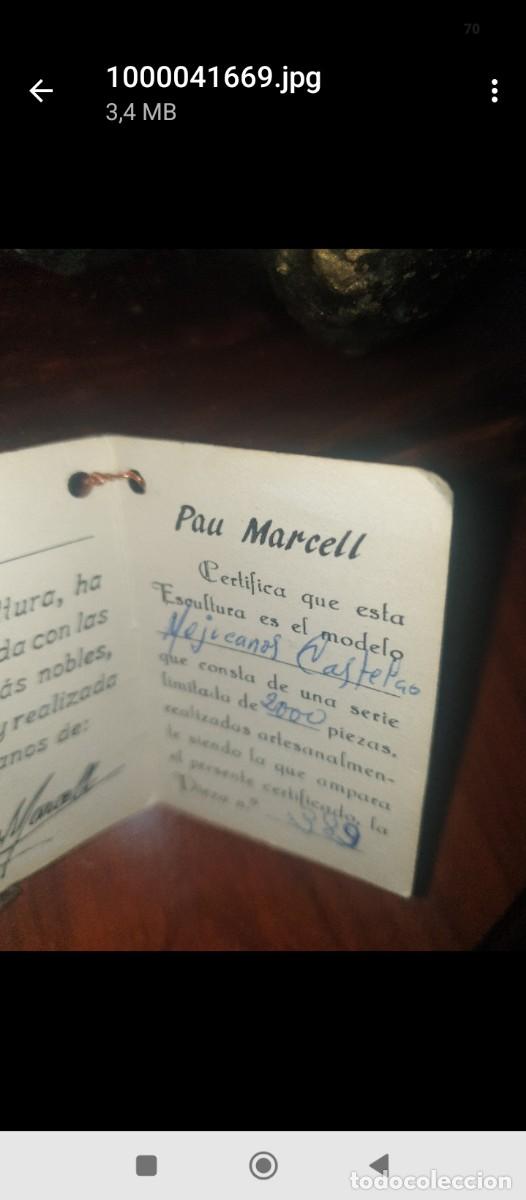 70
1000041669.jpg
3,4 MB
Pau Marcell
Certifica que esta
Escultura es el modelo
Mejicanos
que consta de una serie
limitada de 2000 piezas,
realizadas artesanalmen-
te siendo la que ampara
el presente certificado, la
Pieza n.º 389
ha
da con las
ás nobles,
y realizada
anos de:
Marcell
todocoleccion